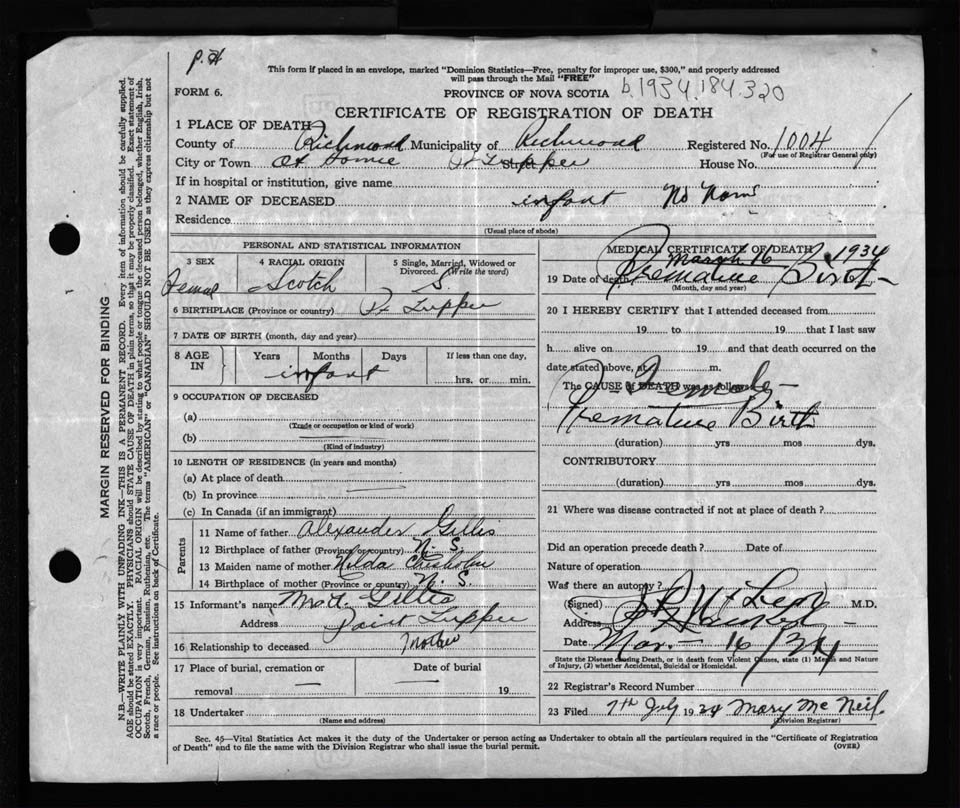 P.H
This form if placed in an envelope, marked "Dominion Statistics—Free, penalty for improper use, $300," and properly addressed
will pass through the Mail "FREE"
FORM 6.
PROVINCE OF NOVA SCOTIA
b.1934.184.320
CERTIFICATE OF REGISTRATION OF DEATH
1 PLACE OF DEATH
County of Richmond Municipality of Richmond Registered No. 1004
(For use of Registrar General only)
City or Town At Home Street Pt Tupper House No.
If in hospital or institution, give name
2 NAME OF DECEASED infant No Name
Residence
(Usual place of abode)
PERSONAL AND STATISTICAL INFORMATION
3 SEX
4 RACIAL ORIGIN
5 Single, Married, Widowed or Divorced. (Write the word)
Female Scotch S.
6 BIRTHPLACE (Province or country) Pt Tupper
7 DATE OF BIRTH (month, day and year)
8 AGE IN
Years Months Days If less than one day,
infant hrs. or min.
9 OCCUPATION OF DECEASED
(a)
(Trade or occupation or kind of work)
(b)
(Kind of industry)
10 LENGTH OF RESIDENCE (in years and months)
(a) At place of death
(b) In province
(c) In Canada (if an immigrant)
Parents
11 Name of father Alexander Gillis
12 Birthplace of father (Province or country) N. S.
13 Maiden name of mother Hilda Chisholm
14 Birthplace of mother (Province or country) N. S.
15 Informant's name Mrs A. Gillis
Address Point Tupper
16 Relationship to deceased Mother
17 Place of burial, cremation or removal
Date of burial
19
18 Undertaker
(Name and address)
MEDICAL CERTIFICATE OF DEATH
March 16 1934
19 Date of death Premature Birth
(Month, day and year)
20 I HEREBY CERTIFY that I attended deceased from
19 to 19 that I last saw
h alive on 19 and that death occurred on the
date stated above, at m.
The CAUSE of DEATH was as follows:
Female
Premature Birth
(duration) yrs mos dys.
CONTRIBUTORY
(duration) yrs mos dys.
21 Where was disease contracted if not at place of death?
Did an operation precede death? Date of
Nature of operation
Was there an autopsy?
(Signed) M.D.
Address
Date Mar. 16/34
State the Disease causing Death, or in death from Violent Causes, state (1) Means and Nature
of Injury, (2) whether Accidental, Suicidal or Homicidal.
22 Registrar's Record Number
23 Filed 7th July 1934 Mary McNeil
(Division Registrar)
Sec. 45—Vital Statistics Act makes it the duty of the Undertaker or person acting as Undertaker to obtain all the particulars required in the "Certificate of Registration
of Death" and to file the same with the Division Registrar who shall issue the burial permit.
(OVER)
MARGIN RESERVED FOR BINDING
N.B.—WRITE PLAINLY WITH UNFADING INK—THIS IS A PERMANENT RECORD. Every item of information should be carefully supplied.
AGE should be stated EXACTLY. PHYSICIANS should STATE CAUSE OF DEATH in plain terms, so that it may be properly classified. Exact statement of
OCCUPATION is very important. RACIAL ORIGIN will be described by stating to what people or tongue the deceased person belonged, whether English, Irish,
Scotch, French, German, Russian, Ruthenian, etc. The terms "AMERICAN" or "CANADIAN" SHOULD NOT BE USED as they express citizenship but not
a race or people. See instructions on back of Certificate.